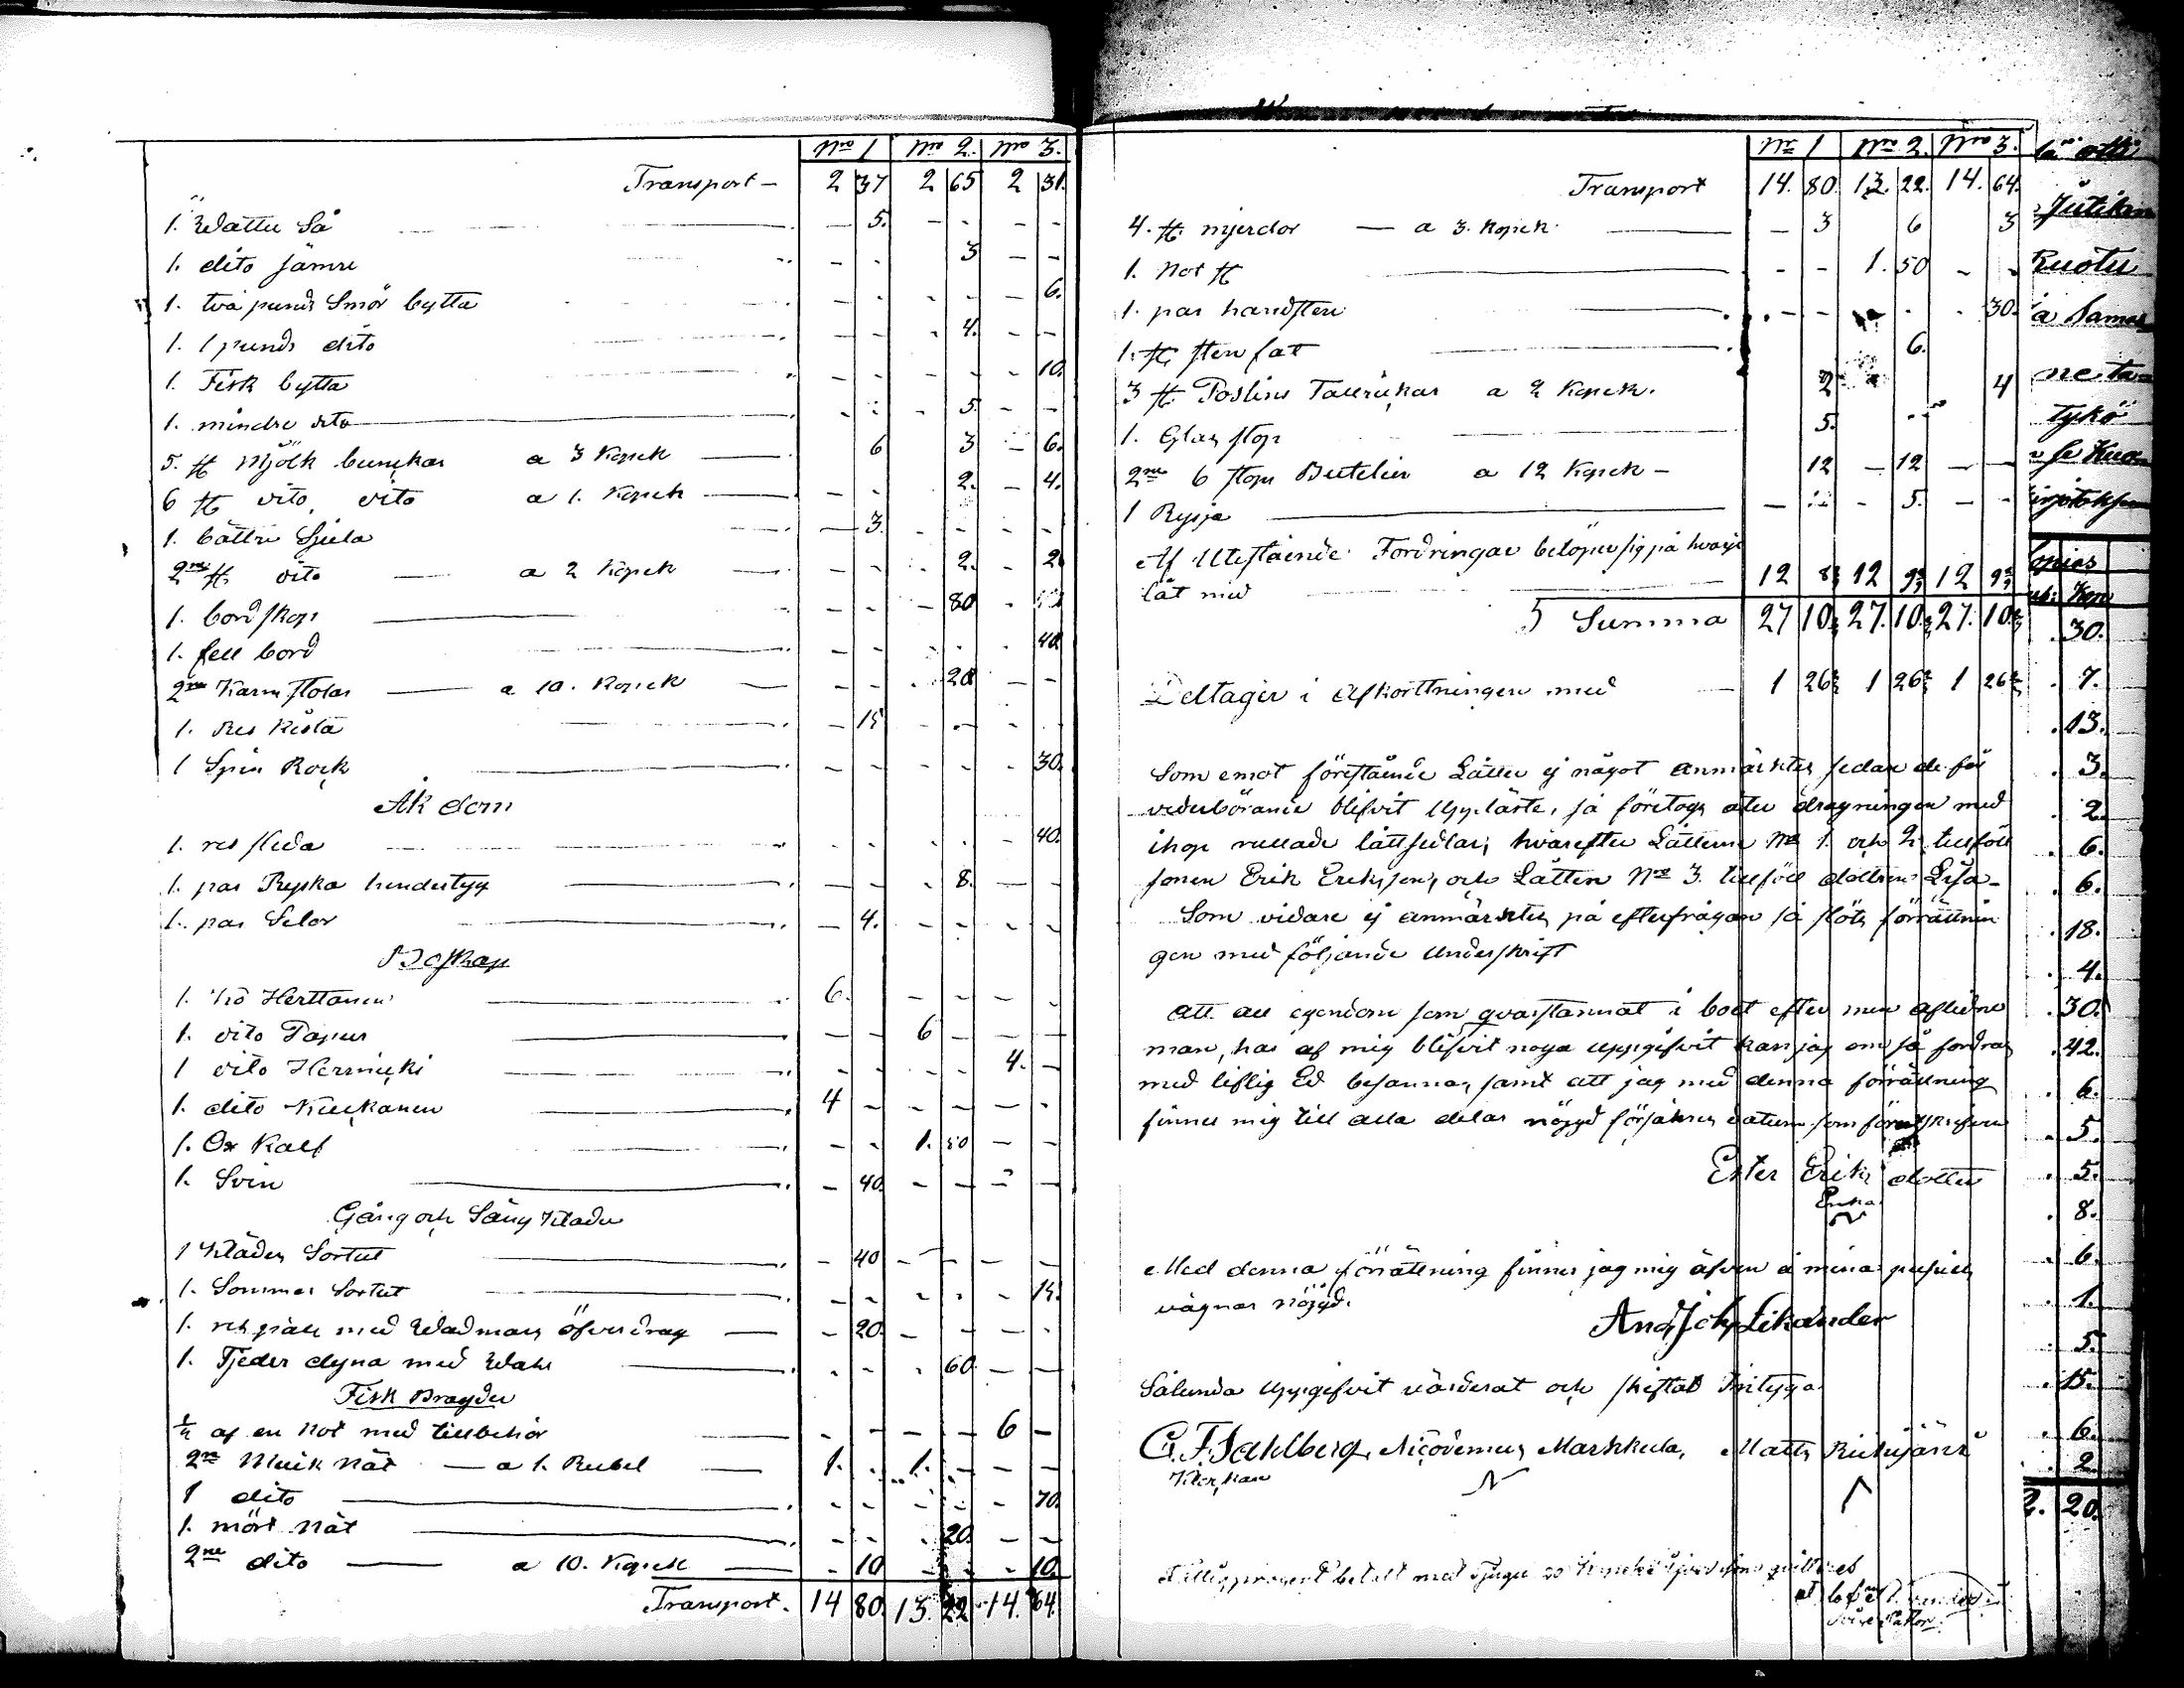 1 ått 2 ått 3 ått
Transport - 2 37 2 65 2 31.
1. Wattu Så — 5. - - - -
1. dito sämre - - 3 - -
1. två punds Smör bytta - - - - - 6.
1. 1 punds dito - - . 4. - -
1. Fisk bytta - - - - - 10.
1. mindre dito - - - 5. - -
5. st Mjölk bunckar a 3 Kopek 6 3 - 6.
6 st dito, dito a 1. Kopek - - 2. - 4.
1. bättre Sjula - 3. - - - -
2ne st. dito a 2 Kopek - - - 2. - 2.
1. bord skop - - - 80 -
1. fell bord - - - - - 40
2ne Karm stolar a 10. Kopek - - - 20 - -
1. Res Kista - 15 - - - -
1 Spin Rock - - - - - 30.
Åkdom
1. res släda - - - - - 40.
1. par Ryska hindertyg - - - 8. - -
1. par Selor - 4. - - - -
Boskap
1. Ko Herttanen 6. - - - -
1. dito Papus - - 6 - - -
1 dito Hermicki - - - - 4. -
1. dito Kuckanen 4 - - - - -
1. Ox Kalf - - 1. 50 - -
1. Svin - 40. - - - -
Gång och Säng Kläder
1 Klädes Sortut - 40 - - - -
1. Sommar Sortut - - - - - 15.
1. res päls med Wadmars öfverdrag - 20. - - - -
1. Fjeder dyna med Wahr - - . 60. - -
Fisk Bragder
½ af en Not med tillbehör - - - - 6 -
2ne Muik Nät a 1. Rubel 1. . 1. - - -
1 dito - - - - - 70.
1. mört Nät - - - 20. - -
2ne dito a 10. Kopek - 10 - - - 10.
Transport. 14 80. 13. 22 14. 64.
1 ått 2 ått 3 ått
Transport 14. 80. 13. 22. 14. 64.
4. st. mjerdor — a 3. Kopek - 3 6 3
1. Not st - - 1. 50 - -
1. par handsten - - - - 30.
1. st. sten fat 6.
3 st. Poslins Tallrickar a 2 Kopek. 2 4
1. Glas stop 5.
2ne 6 stops Buteljer a 12 Kopek - 12 - 12 - -
1 Rysja - - - 5. - -
Af Utestående Fordringar belöper sig på hvarje
lått med 12 8 12 12
Summa 27 10 27. 10 27. 10
Deltager i afkorttningen med 1 26 1 26 1 26
Som emot föreståënde Låtter ej något anmärktes sedan de för
vederbörande blifvit Upplärte, så företogs åter dragningen med
ihop rullade låttsedlar, hvarefter Låtterne No 1. och 2. tillföll
sonen Erik Eriksson, och Låtten No 3. tillföll dottren Lisa-
Som vidare ej anmärktes på efterfrågan så slöts förrättnin
gen med följande Underskrift
Att all egendom som qvarstannat i boet efter min aflidne
man, har af mig blifvit noga uppgifvit kan jag om så fordras
med liflig Ed besanna, samt att jag med denna förrättning
finner mig till alla delar nöjgd försäkras datum som förr
Ester Eriks dotter
Enka
Med denna förrättning finner jag mig äfven å mina pupillers
vägnar nöjgd.
And Joh Likander
Sålunda Uppgifvit värderat och skiftat Intyga
G. F. Sahlberg, Nicodemus Markkula, Matts
Klockare
procent betalt med tjugu 20 Kopek
lä otti
Ruotu
tykö
Kop
30.
7.
13.
3.
2.
6.
6.
18.
4.
30.
42.
6.
5.
5.
8.
6.
1.
5.
15.
6.
2.
2. 20.